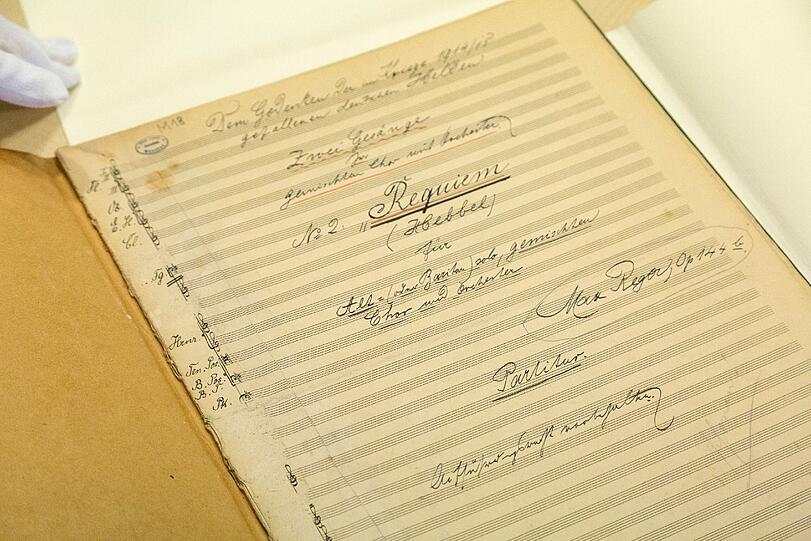 M18
Dem Gedenken der im Kriege 1914/15
gefallenen deutschen Helden
Zwei Gesänge
für
gemischten Chor mit Orchester
No 2. "Requiem
(Hebbel)
für
Alt= (oder Bariton) solo, gemischten
Chor und Orchester
Max Reger, Op 144 b.
Partitur.
Aufführungsrecht vorbehalten.
Fl.
Ob.
E. H.
Cl.
Fg
Horn
Ten. Pos.
B. Pos.
B. T.
Pk.